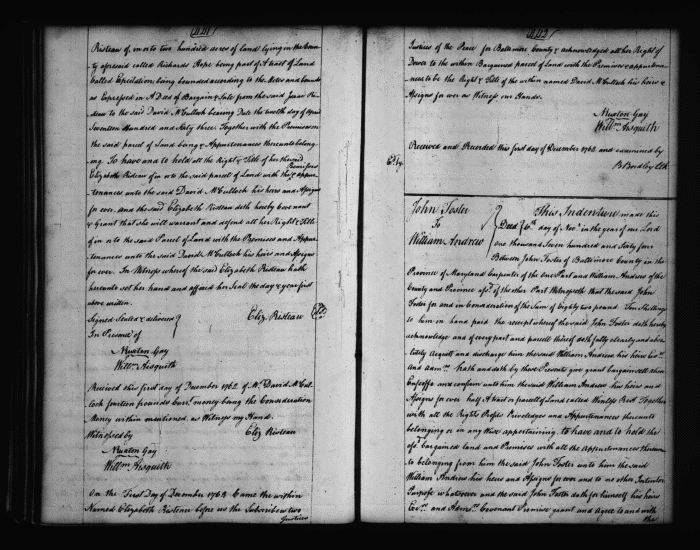 441
Risteau of in or to two hundred acres of land lying in the Coun
ty aforesaid called Richards Hope being part of A tract of Land
Called Expectation being bounded according to the Metes and bounds
as Expressed in A Deed of Bargain & Sale from the said Isaac Ris
teau to the said David McCulloch bearing Date the twelth day of April
Seventeen Hundred and Sixty three Together with the Premises on
the said parcel of Land being & Appurtenances thereunto belong
ing. To have and to hold all the Right & Title of her the said
Elizabeth Risteau of in or to the said parcel of Land with the Premises & appur
tenances unto the said David McCulloch his heirs and Assigns
for ever. and the said Elizabeth Risteau doth hereby Covenant
& Grant that she will warrant and defend all her Right & Title
of in or to the said Parcel of Land with the Premises and Appur
tenances unto the said David McCulloch his heirs and Assigns
for ever. In Witness whereof the said Elizabeth Risteau hath
hereunto set her hand and affixed her Seal the day & year first
above written.
Signed Sealed & delivered
In Presence of
Eliz. Risteau
Nuxton Gay
Willm Aisquith
Received this first day of December 1762 of Mr. David McCul
loch fourteen pounds Curr. money being the Consideration
Money within mentioned. as Witness my Hand.
Witnessed by
Eliz Risteau
Nuxton Gay
Willm Aisquith
On the First Day of December 1762 Came the within
Named Elizabeth Risteau before us the Subscribers two
Justices
442
Justices of the Peace for Baltimore County & acknowledged all her Right of
Dower to the within Bargained parcel of Land with the Premises & appurte
nances to be the Right & Title of the within named David McCulloch his heirs &
Assigns for ever as Witness our Hands.
Nuxton Gay
Willm Aisquith
Received and Recorded this first day of December 1762 and examined by
B Bordley Clk
John Foster
To
William Andrew
Deed
This Indenture made this
day of Novr. in the year of our Lord
one thousand Seven hundred and Sixty four
Between John Foster of Baltimore County in the
Province of Maryland Carpenter of the one Part and William Andrew of the
County and Province afsd. of the other Part Witnesseth that the said John
Foster for and in Consideration of the Sum of Eighty two pound Ten Shillings
to him in hand paid the receipt whereof the said John Foster doth hereby
acknowledge and of every part and parcell thereof doth fully clearly and abso
lutely Acquit and discharge him the said William Andrew his heirs Exrs.
and Admrs. hath and doth by these Presents give grant bargain sell alien
Enfeoffe and confirm unto him the said William Andrew his heirs and
Assigns for ever half A tract or parcel of Land called Together
with all the Rights Profits Priviledges and Appurtenances thereunto
belonging or in any Wise appertaining. to have and to hold the
afsd. bargained land and Premises with all the appurtenances thereun
to belonging from him the said John Foster unto him the said
William Andrew his heirs and Assigns for ever and to no other Intent or
Purpose whatsoever and the said John Foster doth for himself his heirs
Exrs. and Admrs. Covenant Promise grant and Agree to and with
the